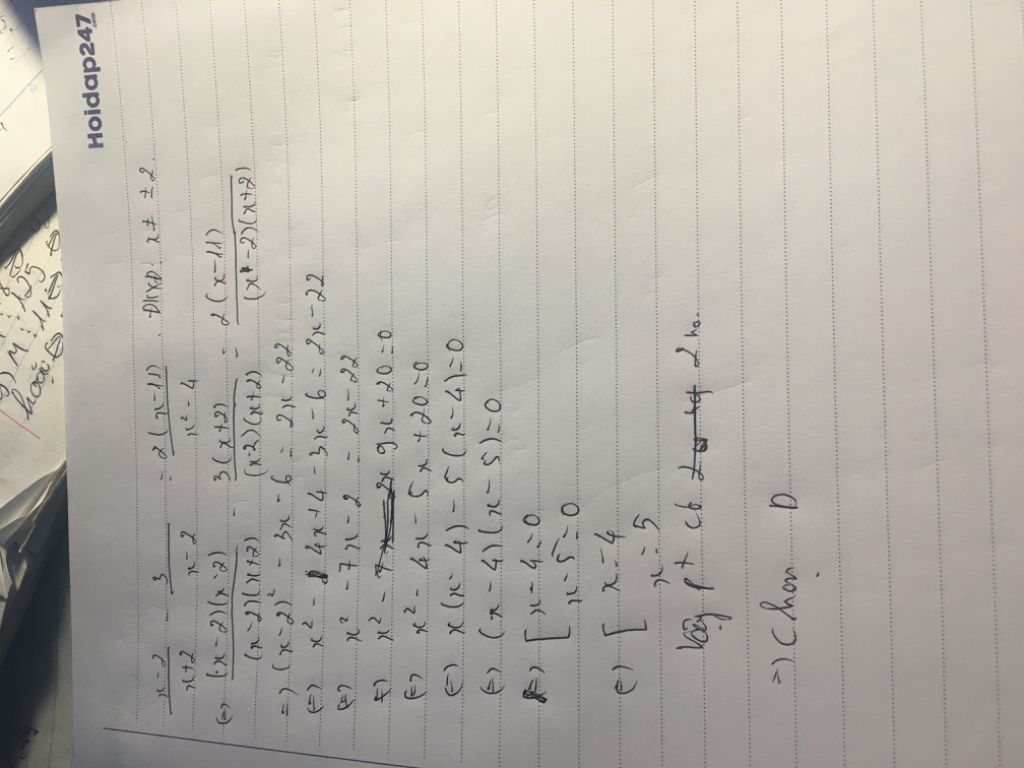 Hoidap247
x-2/x+2 - 3/x-2 = 2(x-11)/x²-4. ĐKXĐ: x ≠ ±2.
(=) (x-2)(x-2)/(x-2)(x+2) - 3(x+2)/(x-2)(x+2) = 2(x-11)/(x-2)(x+2)
=) (x-2)² - 3x - 6 = 2x - 22
(=) x² - 4x + 4 - 3x - 6 = 2x - 22
(=) x² - 7x - 2 = 2x - 22
(=) x² - 9x + 20 = 0
(=) x² - 4x - 5x + 20 = 0
(=) x(x-4) - 5(x-4) = 0
(=) (x-4)(x-5) = 0
(=) [ x-4=0
x-5=0
(=) [ x=4
x=5
Vậy pt có 2 no.
=) Chọn D
g) M : 125
hoặc